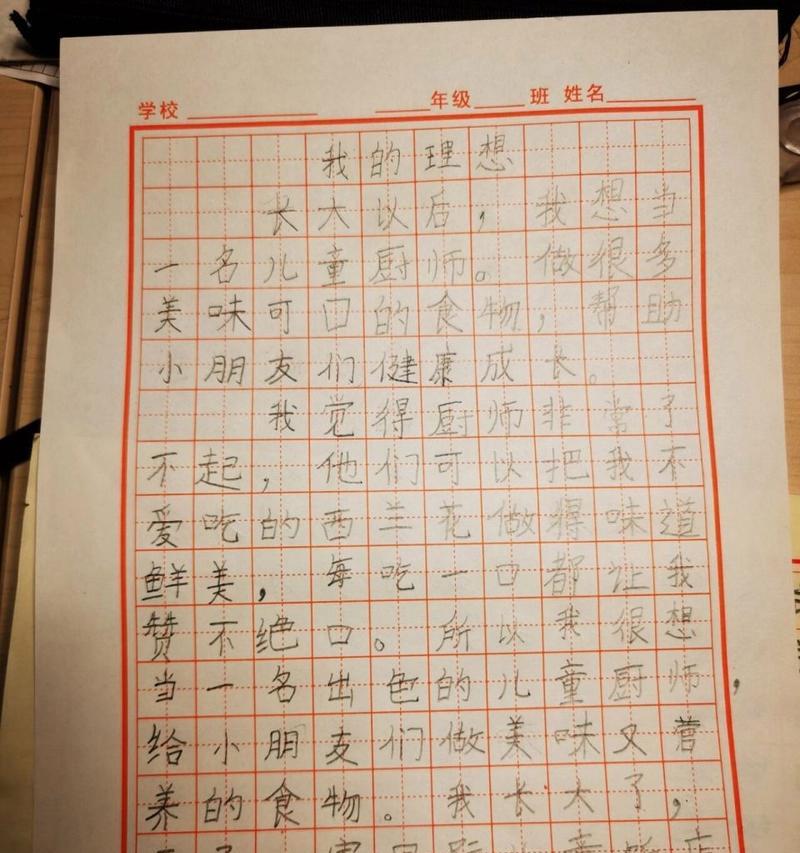 学校 年级 班 姓名
我的理想
长大以后，我想当
一名儿童厨师。做很多
美味可口的食物，帮助
小朋友们健康成长。
我觉得厨师非常了
不起，他们可以把我不
爱吃的西兰花做得味道
鲜美，每吃一口都让我
赞不绝口。所以我很想
当一名出色的儿童厨师，
给小朋友们做美味又营
养的食物。我长大了，